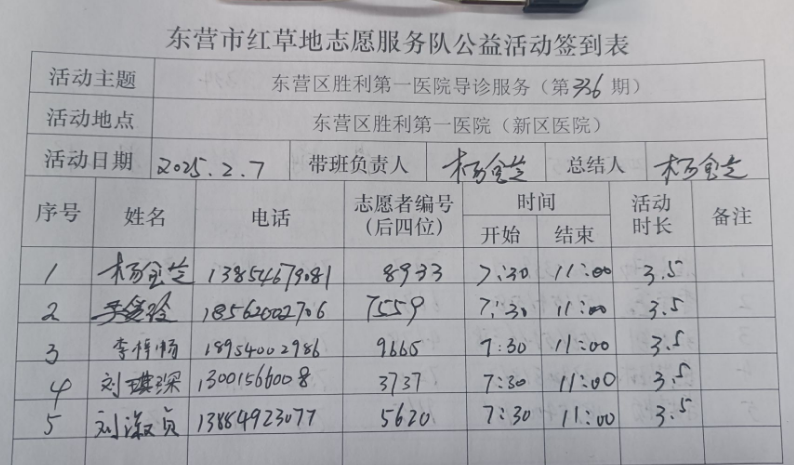 东营市红草地志愿服务队公益活动签到表
活动主题 东营区胜利第一医院导诊服务（第336期）
活动地点 东营区胜利第一医院（新区医院）
活动日期 2025.2.7 带班负责人 杨金芝 总结人 杨金芝
序号 姓名 电话 志愿者编号（后四位） 时间 开始 结束 活动时长 备注
1 杨金芝 13854679081 8933 7:30 11:00 3.5
2 18562002706 7559 7:30 11:00 3.5
3 李悼畅 18954002986 9665 7:30 11:00 3.5
4 刘琪琛 13001566008 3737 7:30 11:00 3.5
5 刘淑贞 13884923077 5620 7:30 11:00 3.5